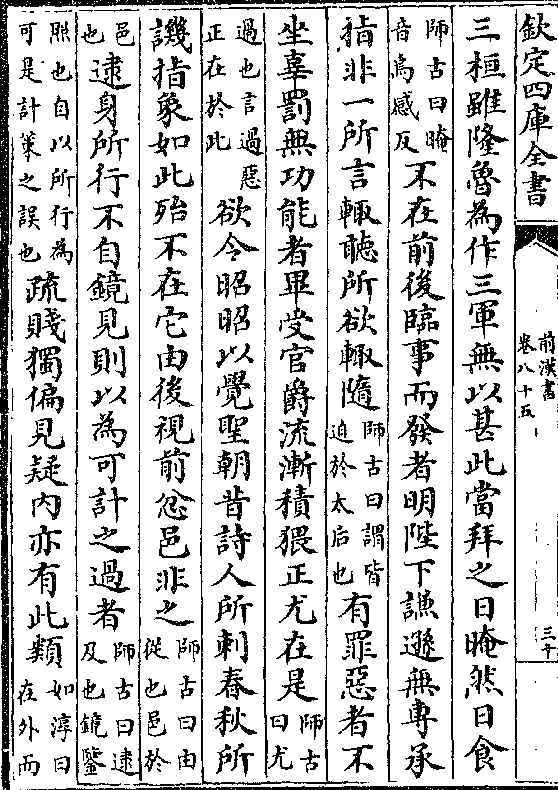 欽定四庫全書
前漢書
卷八十五
三十
三桓雖隆魯為作三軍無以甚此當拜之日晻然日食
師古曰晻
音烏感反
不在前後臨事而發者明陛下謙遜無專承
指非一所言輙聽所欲輙隨
師古曰謂皆
迫於太后也
有罪惡者不
坐辜罰無功能者畢受官爵流漸積猥正尤在是
師古
曰尤
過也言過惡
正在於此
欲令昭昭以覺聖朝昔詩人所刺春秋所
譏指象如此殆不在它由後視前忿邑非之
師古曰由
從也邑於
邑
也
逮身所行不自鏡見則以為可計之過者
師古曰逮
及也鏡鑒
照也自以所行為
可是計策之誤也
疏賤獨偏見疑内亦有此類
如淳曰
在外而